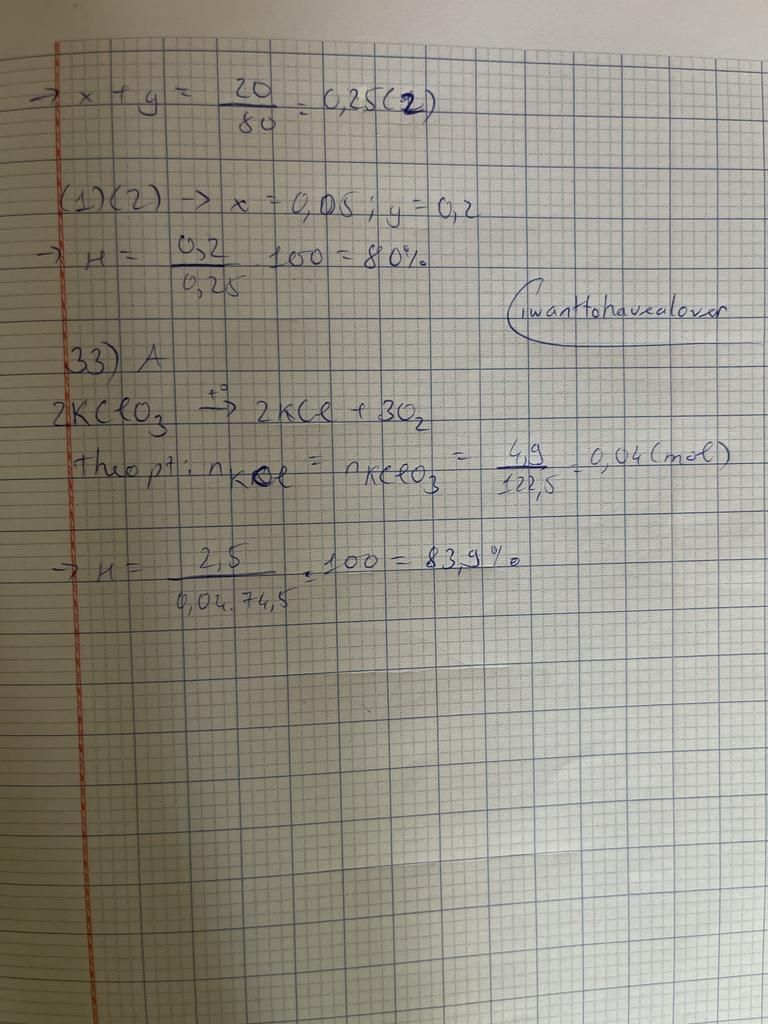 → x + y = 20/80 = 0,25 (2)
(1)(2) → x = 0,05 ; y = 0,2
→ H = 0,2/0,25 100 = 80%
iwanttohavealover
33) A
2KClO3 t° → 2KCl + 3O2
theo pt : nKCl = nKClO3 = 4,9/122,5 = 0,04 (mol)
→ H = 2,5/0,04.74,5 . 100 = 83,9%